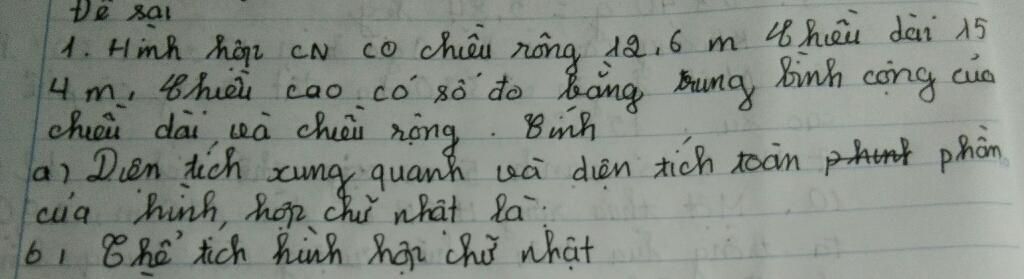 Đề sai
1. Hình hộp CN có chiều rộng 12,6 m chiều dài 15
4 m, chiều cao có số đo bằng trung bình cộng của
chiều dài và chiều rộng. Tính
a) Diện tích xung quanh và diện tích toàn phần
của hình hộp chữ nhật là:
b, Thể tích hình hộp chữ nhật